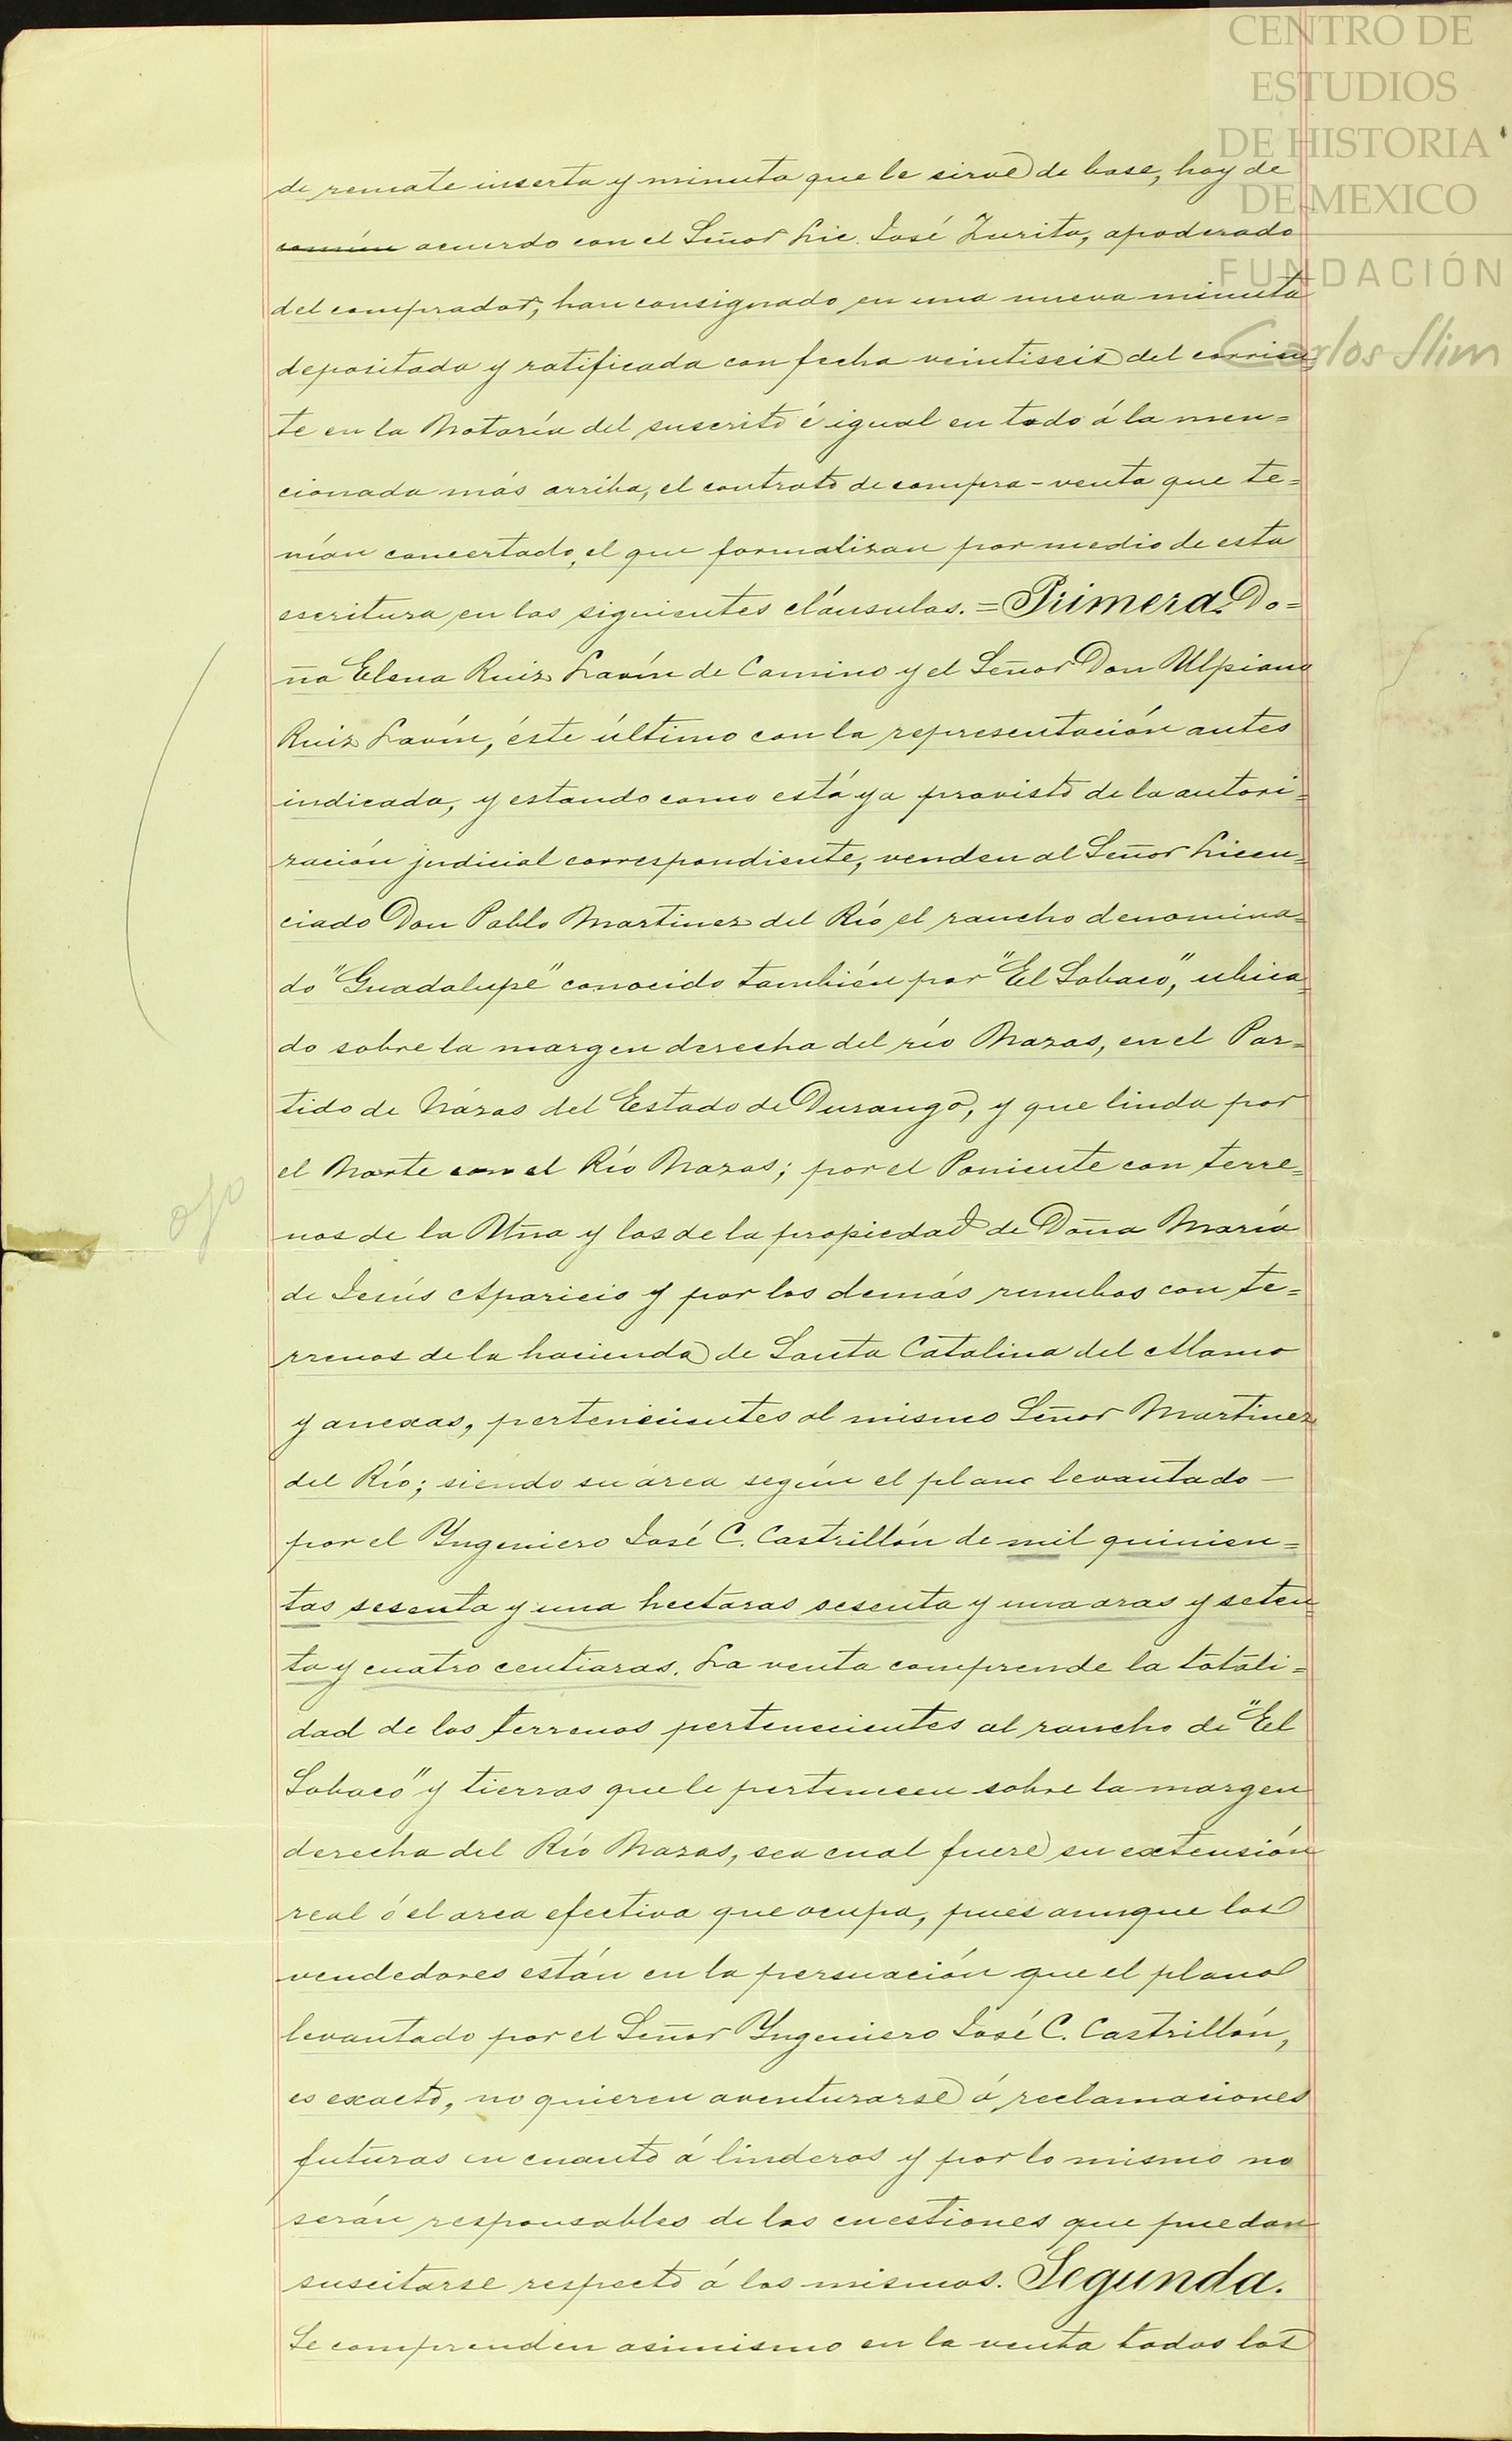 CENTRO DE
ESTUDIOS
DE HISTORIA
DE MEXICO
FUNDACIÓN
Carlos Slim
de remate inserta y minuta que le sirve de base, hoy de
común acuerdo con el Señor Lic. José Zurita, apoderado
del comprador, han consignado en una nueva minuta
depositada y ratificada con fecha veintiseis del corrien
te en la Notaría del suscrito é igual en todo á la men=
cionada más arriba, el contrato de compra-venta que te=
nían concertado, el que formalizan por medio de esta
escritura en las siguientes cláusulas. = Primera. Do=
ña Elena Ruiz Lavín de Camino y el Señor Don Ulpiano
Ruiz Lavín, éste último con la representación antes
indicada, y estando como está ya provisto de la autori=
zación judicial correspondiente, venden al Señor Licen=
ciado Don Pablo Martinez del Río el rancho denomina=
do "Guadalupe" conocido también por "El Sobaco", ubica=
do sobre la margen derecha del río Nazas, en el Par=
tido de Názas del Estado de Durango, y que linda por
el Norte con el Río Nazas; por el Poniente con terre=
ojo
nos de la Uña y los de la propiedad de Doña María
de Jesús Aparicio y por los demás rumbos con te=
rrenos de la hacienda de Santa Catalina del Alamo
y anexas, pertenicientes al mismo Señor Martinez
del Río; siendo su área según el plano levantado —
por el Yngeniero José C. Castrillón de mil quinien=
tas sesenta y una hectaras sesenta y una aras y seten
ta y cuatro centiaras. La venta comprende la totali=
dad de los terrenos pertenecientes al rancho de "El
Sobaco" y tierras que le pertenecen sobre la margen
derecha del Río Nazas, sea cual fuere su extensión
real ó el area efectiva que ocupa, pues aunque los
vendedores están en la persuación que el plano
levantado por el Señor Yngeniero José C. Castrillón,
es exacto, no quieren aventurarse á reclamaciones
futuras en cuanto á linderos y por lo mismo no
serán responsables de las cuestiones que puedan
suscitarse respecto á los mismos. Segunda.
Se comprenden asimismo en la venta todos los